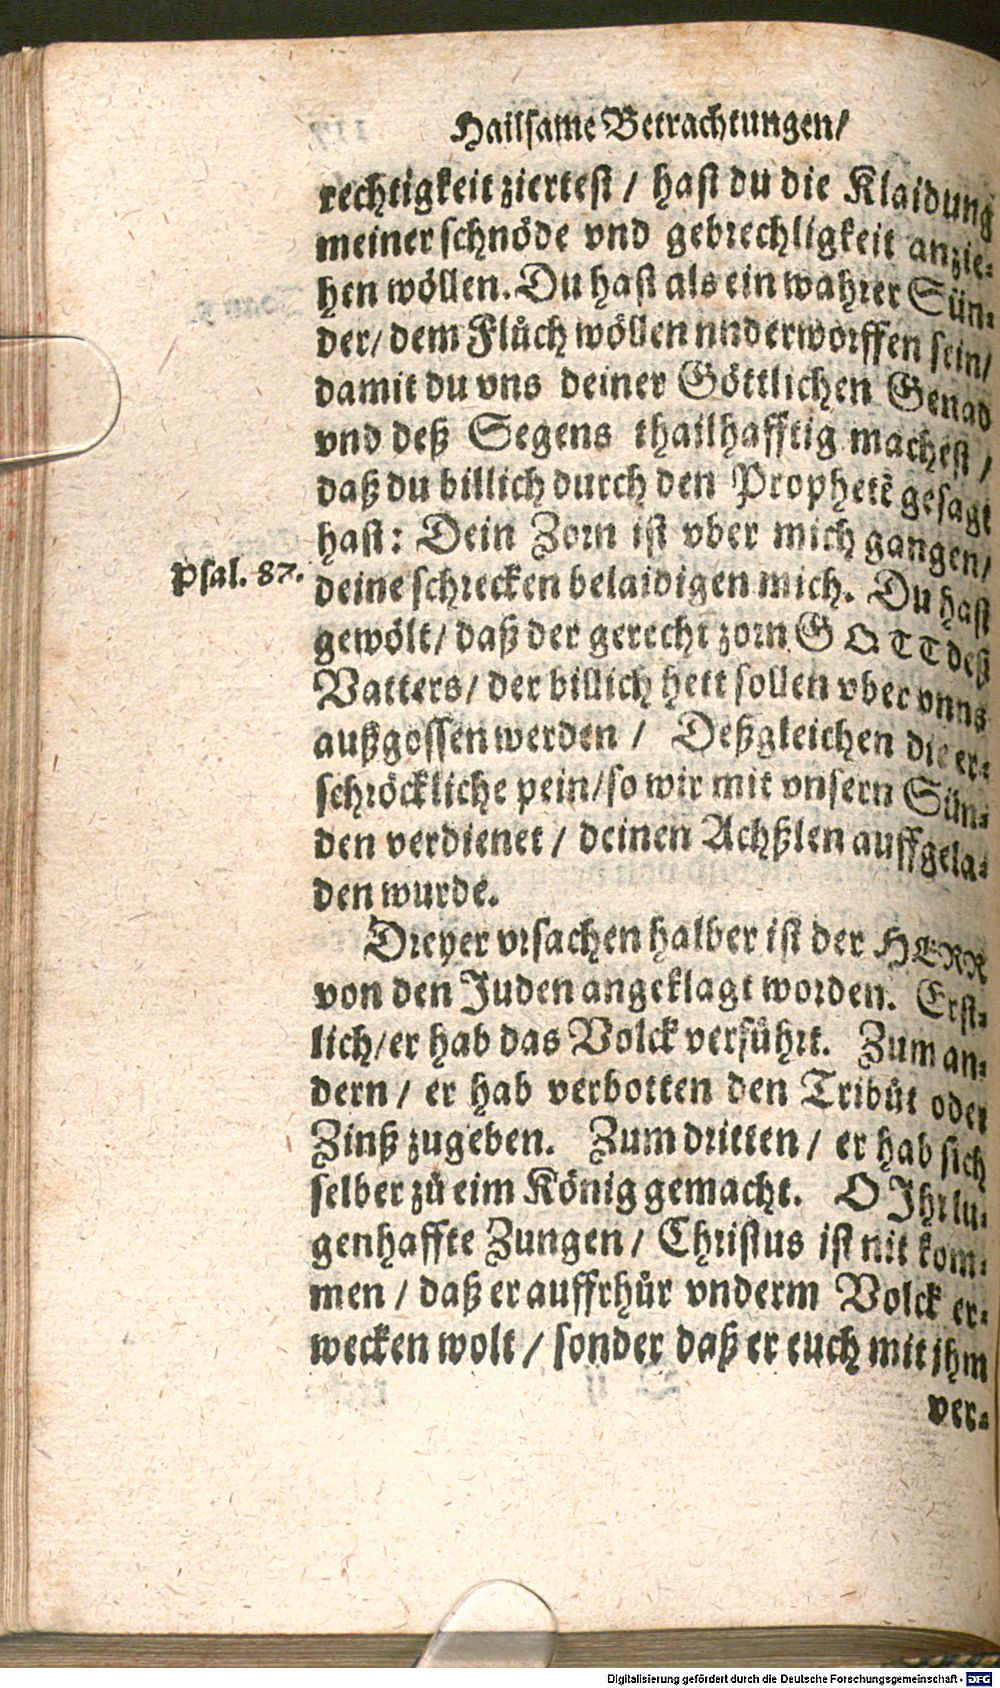 Hailsame Betrachtungen/
rechtigkeit ziertest / hast du die Klaidung
meiner schnöde vnd gebrechligkeit anzie-
hen wöllen. Du hast als ein wahrer Sün-
der/ dem Flůch wöllen nnderworffen sein/
damit du vns deiner Göttlichen Genad
vnd deß Segens thailhafftig machest /
daß du billich durch den Prophetẽ gesagt
hast: Dein Zorn ist vber mich gangen/
Psal. 87. deine schrecken belaidigen mich. Du hast
gewölt/ daß der gerecht zorn GOTT deß
Vatters/ der billich hett sollen vber vnns
außgossen werden / Deßgleichen die er-
schröckliche pein/so wir mit vnsern Sün-
den verdienet / deinen Achßlen auffgela-
den wurde.
Dreyer vrsachen halber ist der HERR
von den Juden angeklagt worden. Erst-
lich/er hab das Volck verführt. Zum an-
dern / er hab verbotten den Tribůt oder
Zinß zugeben. Zum dritten / er hab sich
selber zů eim König gemacht. O Ihr lu-
genhaffte Zungen / Christus ist nit kom-
men / daß er auffrhůr vnderm Volck er-
wecken wolt / sonder daß er euch mit jhm
ver-
Digitalisierung gefördert durch die Deutsche Forschungsgemeinschaft - DFG